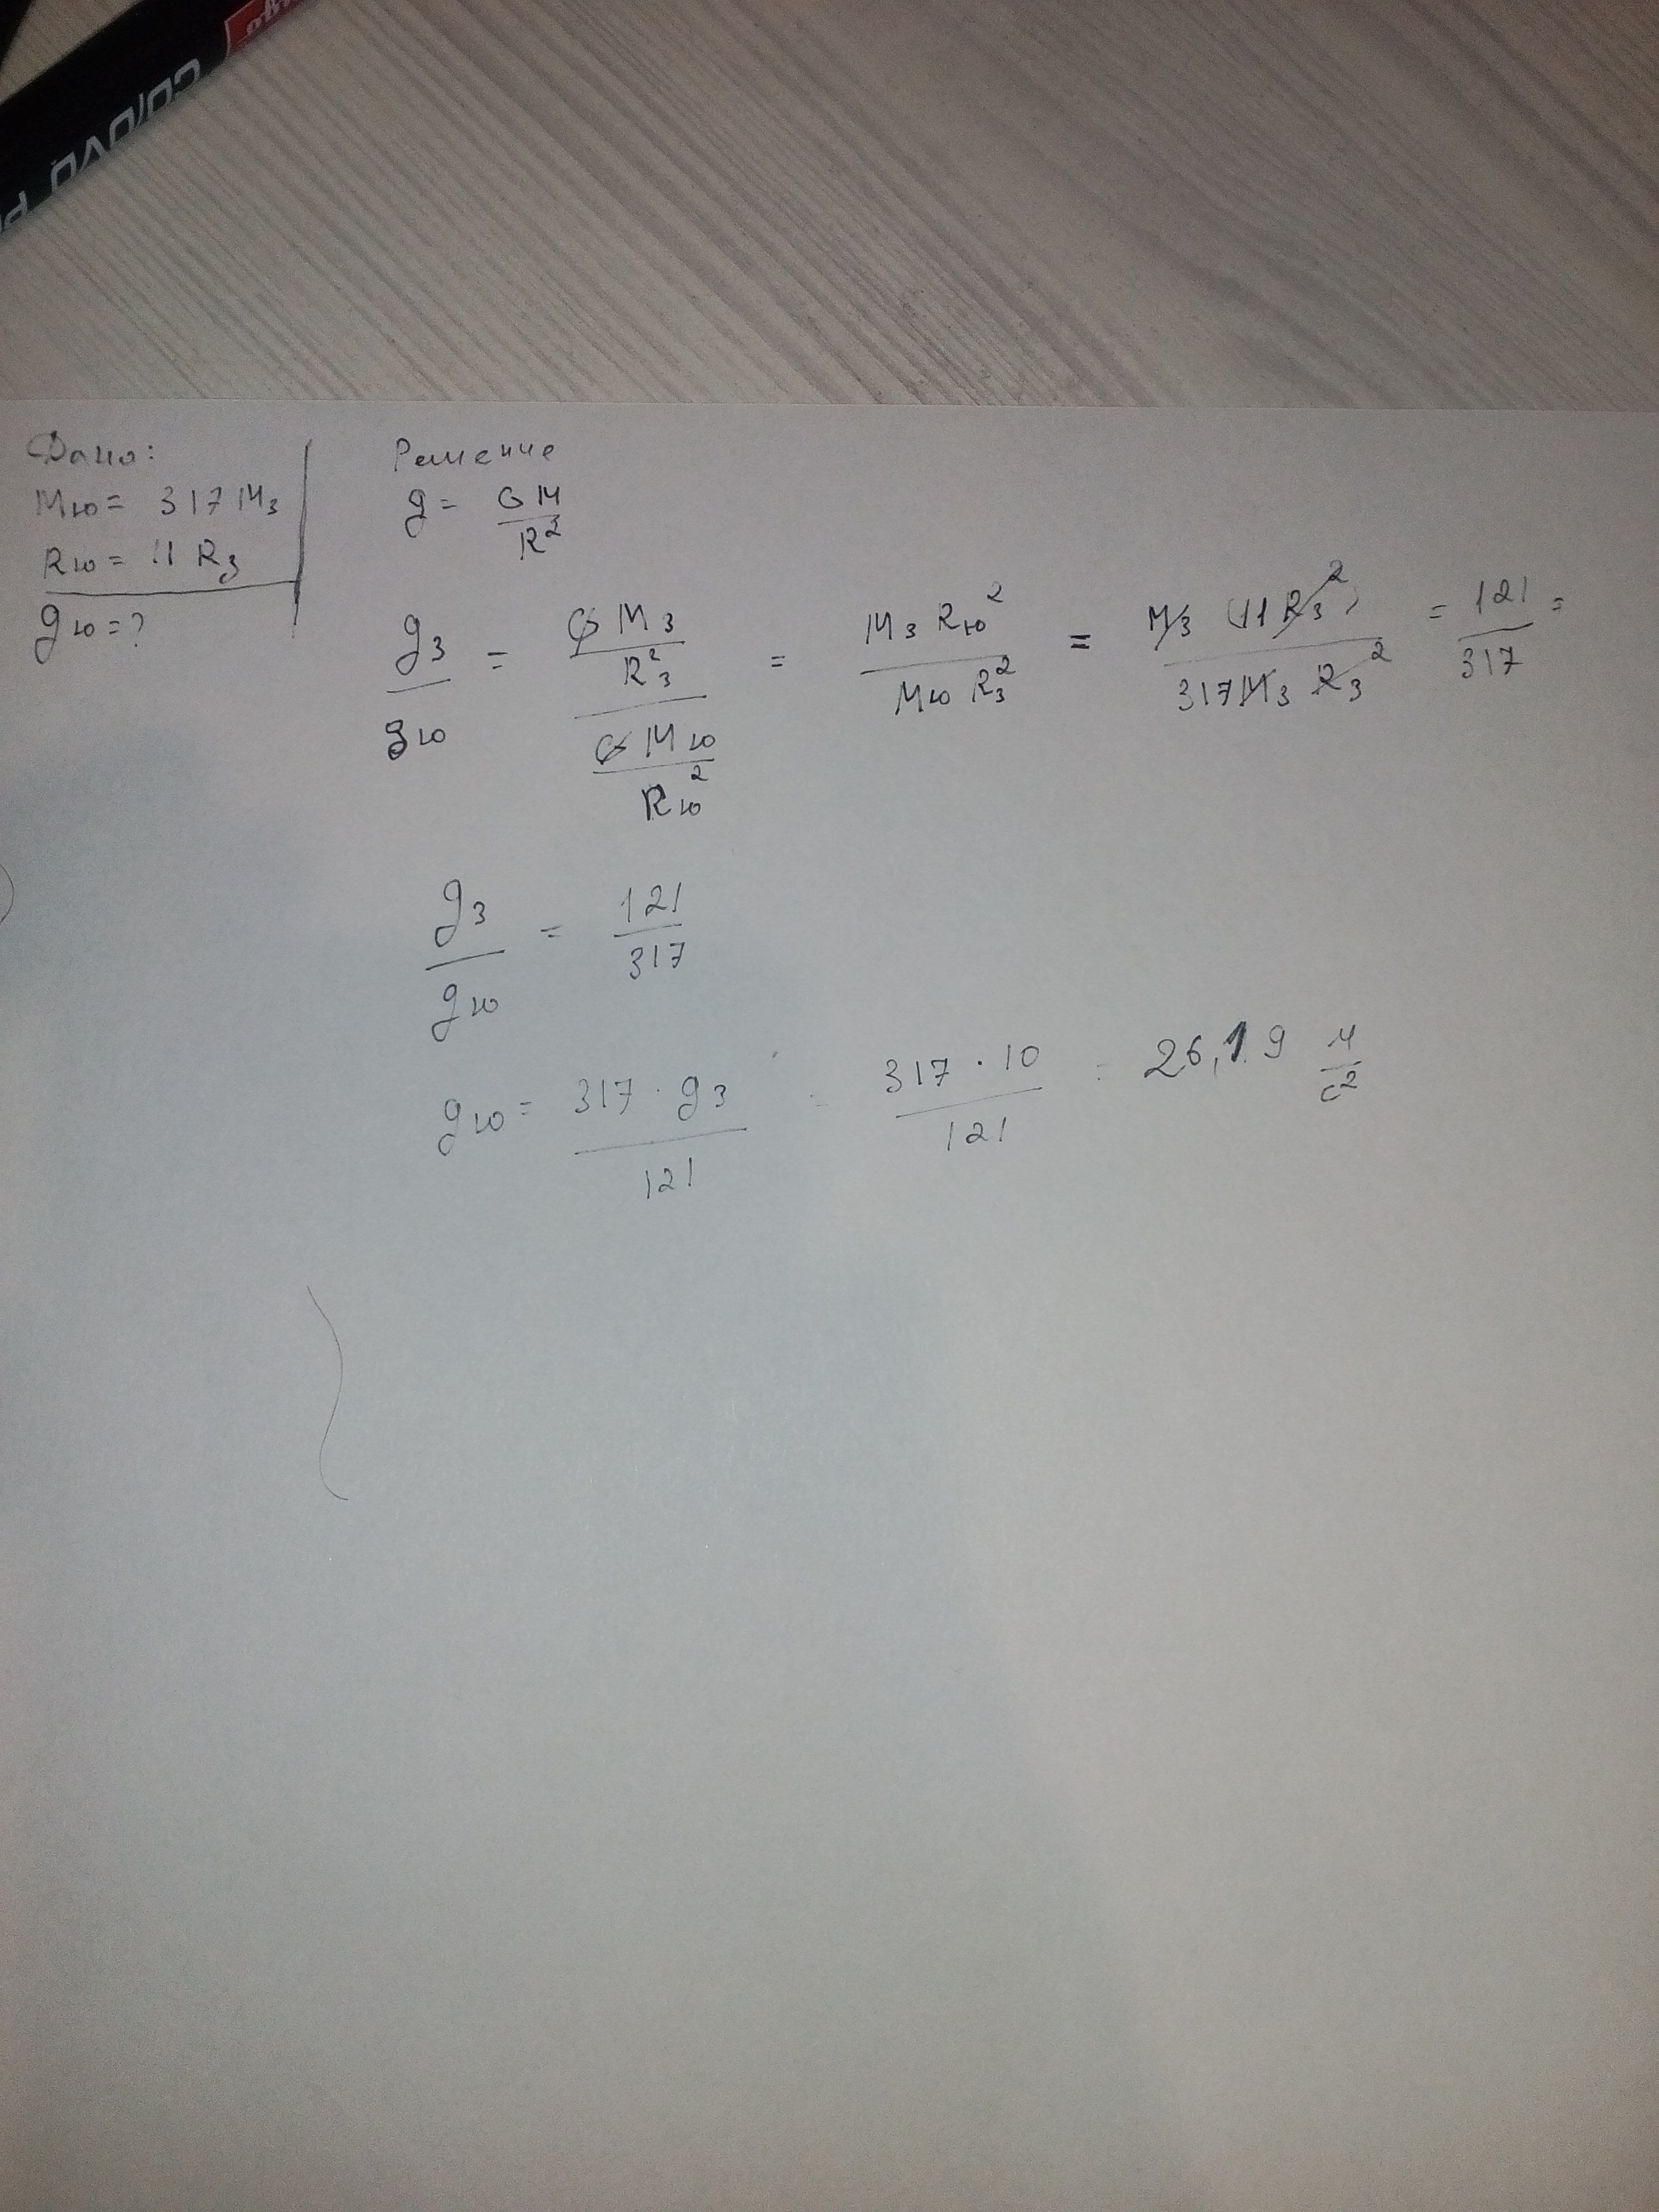 CD/DVD P
Дано:
Mю = 317 Mз
Rю = 11 Rз
gю = ?
Решение
g = GM / R²
gз / gю = (G Mз / Rз²) / (G Mю / Rю²) = Mз Rю² / Mю Rз² = Mз (11 Rз²)² / 317 Mз Rз² = 121 / 317 =
gз / gю = 121 / 317
gю = 317 · gз / 121 = 317 · 10 / 121 = 26,19 м/с²